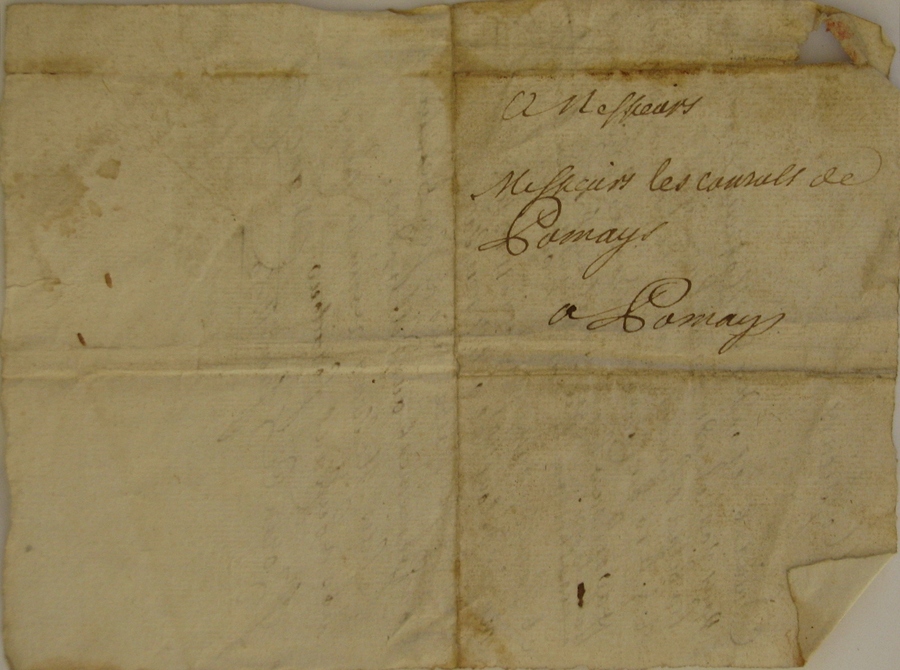 A Messieurs
Messieurs les consuls de
Pomays
a Pomays